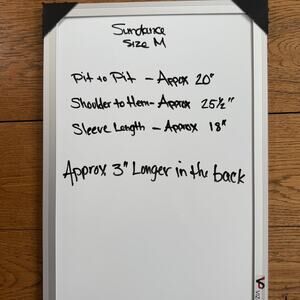 Sundance
Size M
Pit to Pit - Approx 20"
Shoulder to Hem - Approx 25½"
Sleeve Length - Approx 18"
Approx 3" Longer in the back